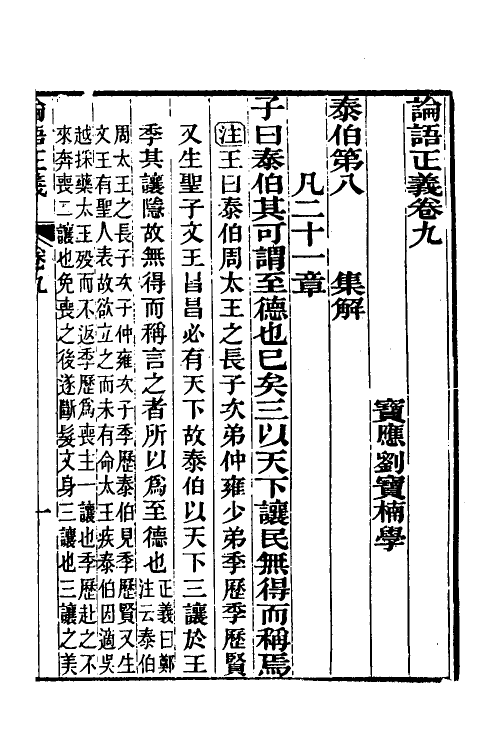 論語正義卷九
寶應劉寶楠學
泰伯第八　集解
凡二十一章
子曰泰伯其可謂至德也已矣三以天下讓民無得而稱焉
注王曰泰伯周太王之長子次弟仲雍少弟季歷季歷賢
又生聖子文王昌昌必有天下故泰伯以天下三讓於王
季其讓隱故無得而稱言之者所以為至德也
正義曰鄭
注云泰伯
周太王之長子次子仲雍次子季歷泰伯見季歷賢又生
文王有聖人表故欲立之而未有命太王疾泰伯因適吳
越採藥太王歿而不返季歷為喪主一讓也季歷赴之不
來奔喪二讓也免喪之後遂斷髮文身三讓也三讓之美
論語正義
卷九
一